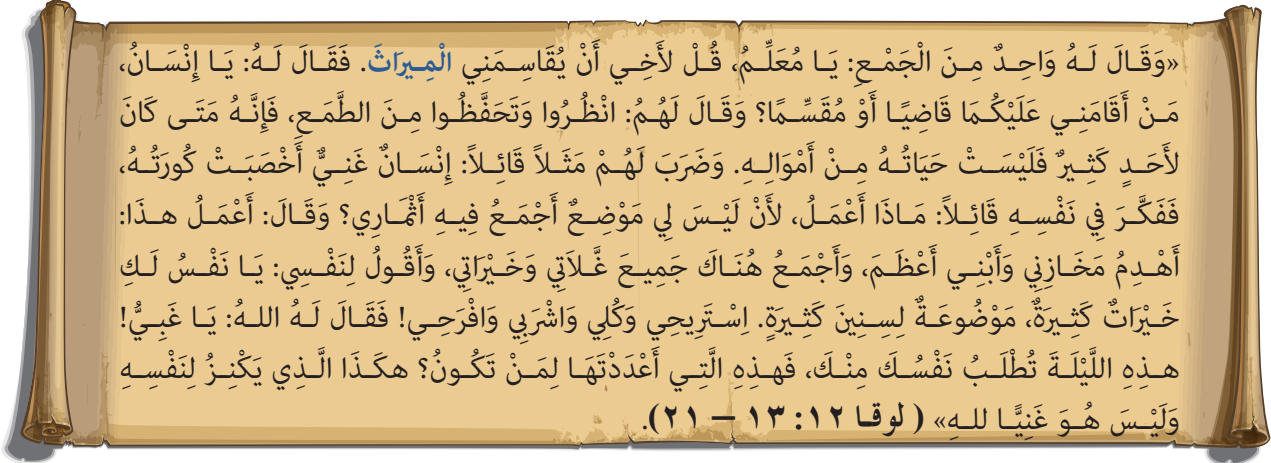 «وَقَالَ لَهُ وَاحِدٌ مِنَ الْجَمْعِ: يَا مُعَلِّمُ، قُلْ لأَخِي أَنْ يُقَاسِمَنِي الْمِيرَاثَ. فَقَالَ لَهُ: يَا إِنْسَانُ،
مَنْ أَقَامَنِي عَلَيْكُمَا قَاضِيًا أَوْ مُقَسِّمًا؟ وَقَالَ لَهُمُ: انْظُرُوا وَتَحَفَّظُوا مِنَ الطَّمَعِ، فَإِنَّهُ مَتَى كَانَ
لأَحَدٍ كَثِيرٌ فَلَيْسَتْ حَيَاتُهُ مِنْ أَمْوَالِهِ. وَضَرَبَ لَهُمْ مَثَلاً قَائِلاً: إِنْسَانٌ غَنِيٌّ أَخْصَبَتْ كُورَتُهُ،
فَفَكَّرَ فِي نَفْسِهِ قَائِلاً: مَاذَا أَعْمَلُ، لأَنْ لَيْسَ لِي مَوْضِعٌ أَجْمَعُ فِيهِ أَثْمَارِي؟ وَقَالَ: أَعْمَلُ هذَا:
أَهْدِمُ مَخَازِنِي وَأَبْنِي أَعْظَمَ، وَأَجْمَعُ هُنَاكَ جَمِيعَ غَّلاَتِي وَخَيْرَاتِي، وَأَقُولُ لِنَفْسِي: يَا نَفْسُ لَكِ
خَيْرَاتٌ كَثِيرَةٌ، مَوْضُوعَةٌ لِسِنِينَ كَثِيرَةٍ. اِسْتَرِيحِي وَكُلِي وَاشْرَبِي وَافْرَحِي! فَقَالَ لَهُ اللهُ: يَا غَبِيُّ!
هذِهِ اللَّيْلَةَ تُطْلَبُ نَفْسُكَ مِنْكَ، فَهذِهِ الَّتِي أَعْدَدْتَهَا لِمَنْ تَكُونُ؟ هكَذَا الَّذِي يَكْنِزُ لِنَفْسِهِ
وَلَيْسَ هُوَ غَنِيًّا للهِ» ( لوقا ١٢: ١٣ – ٢١).